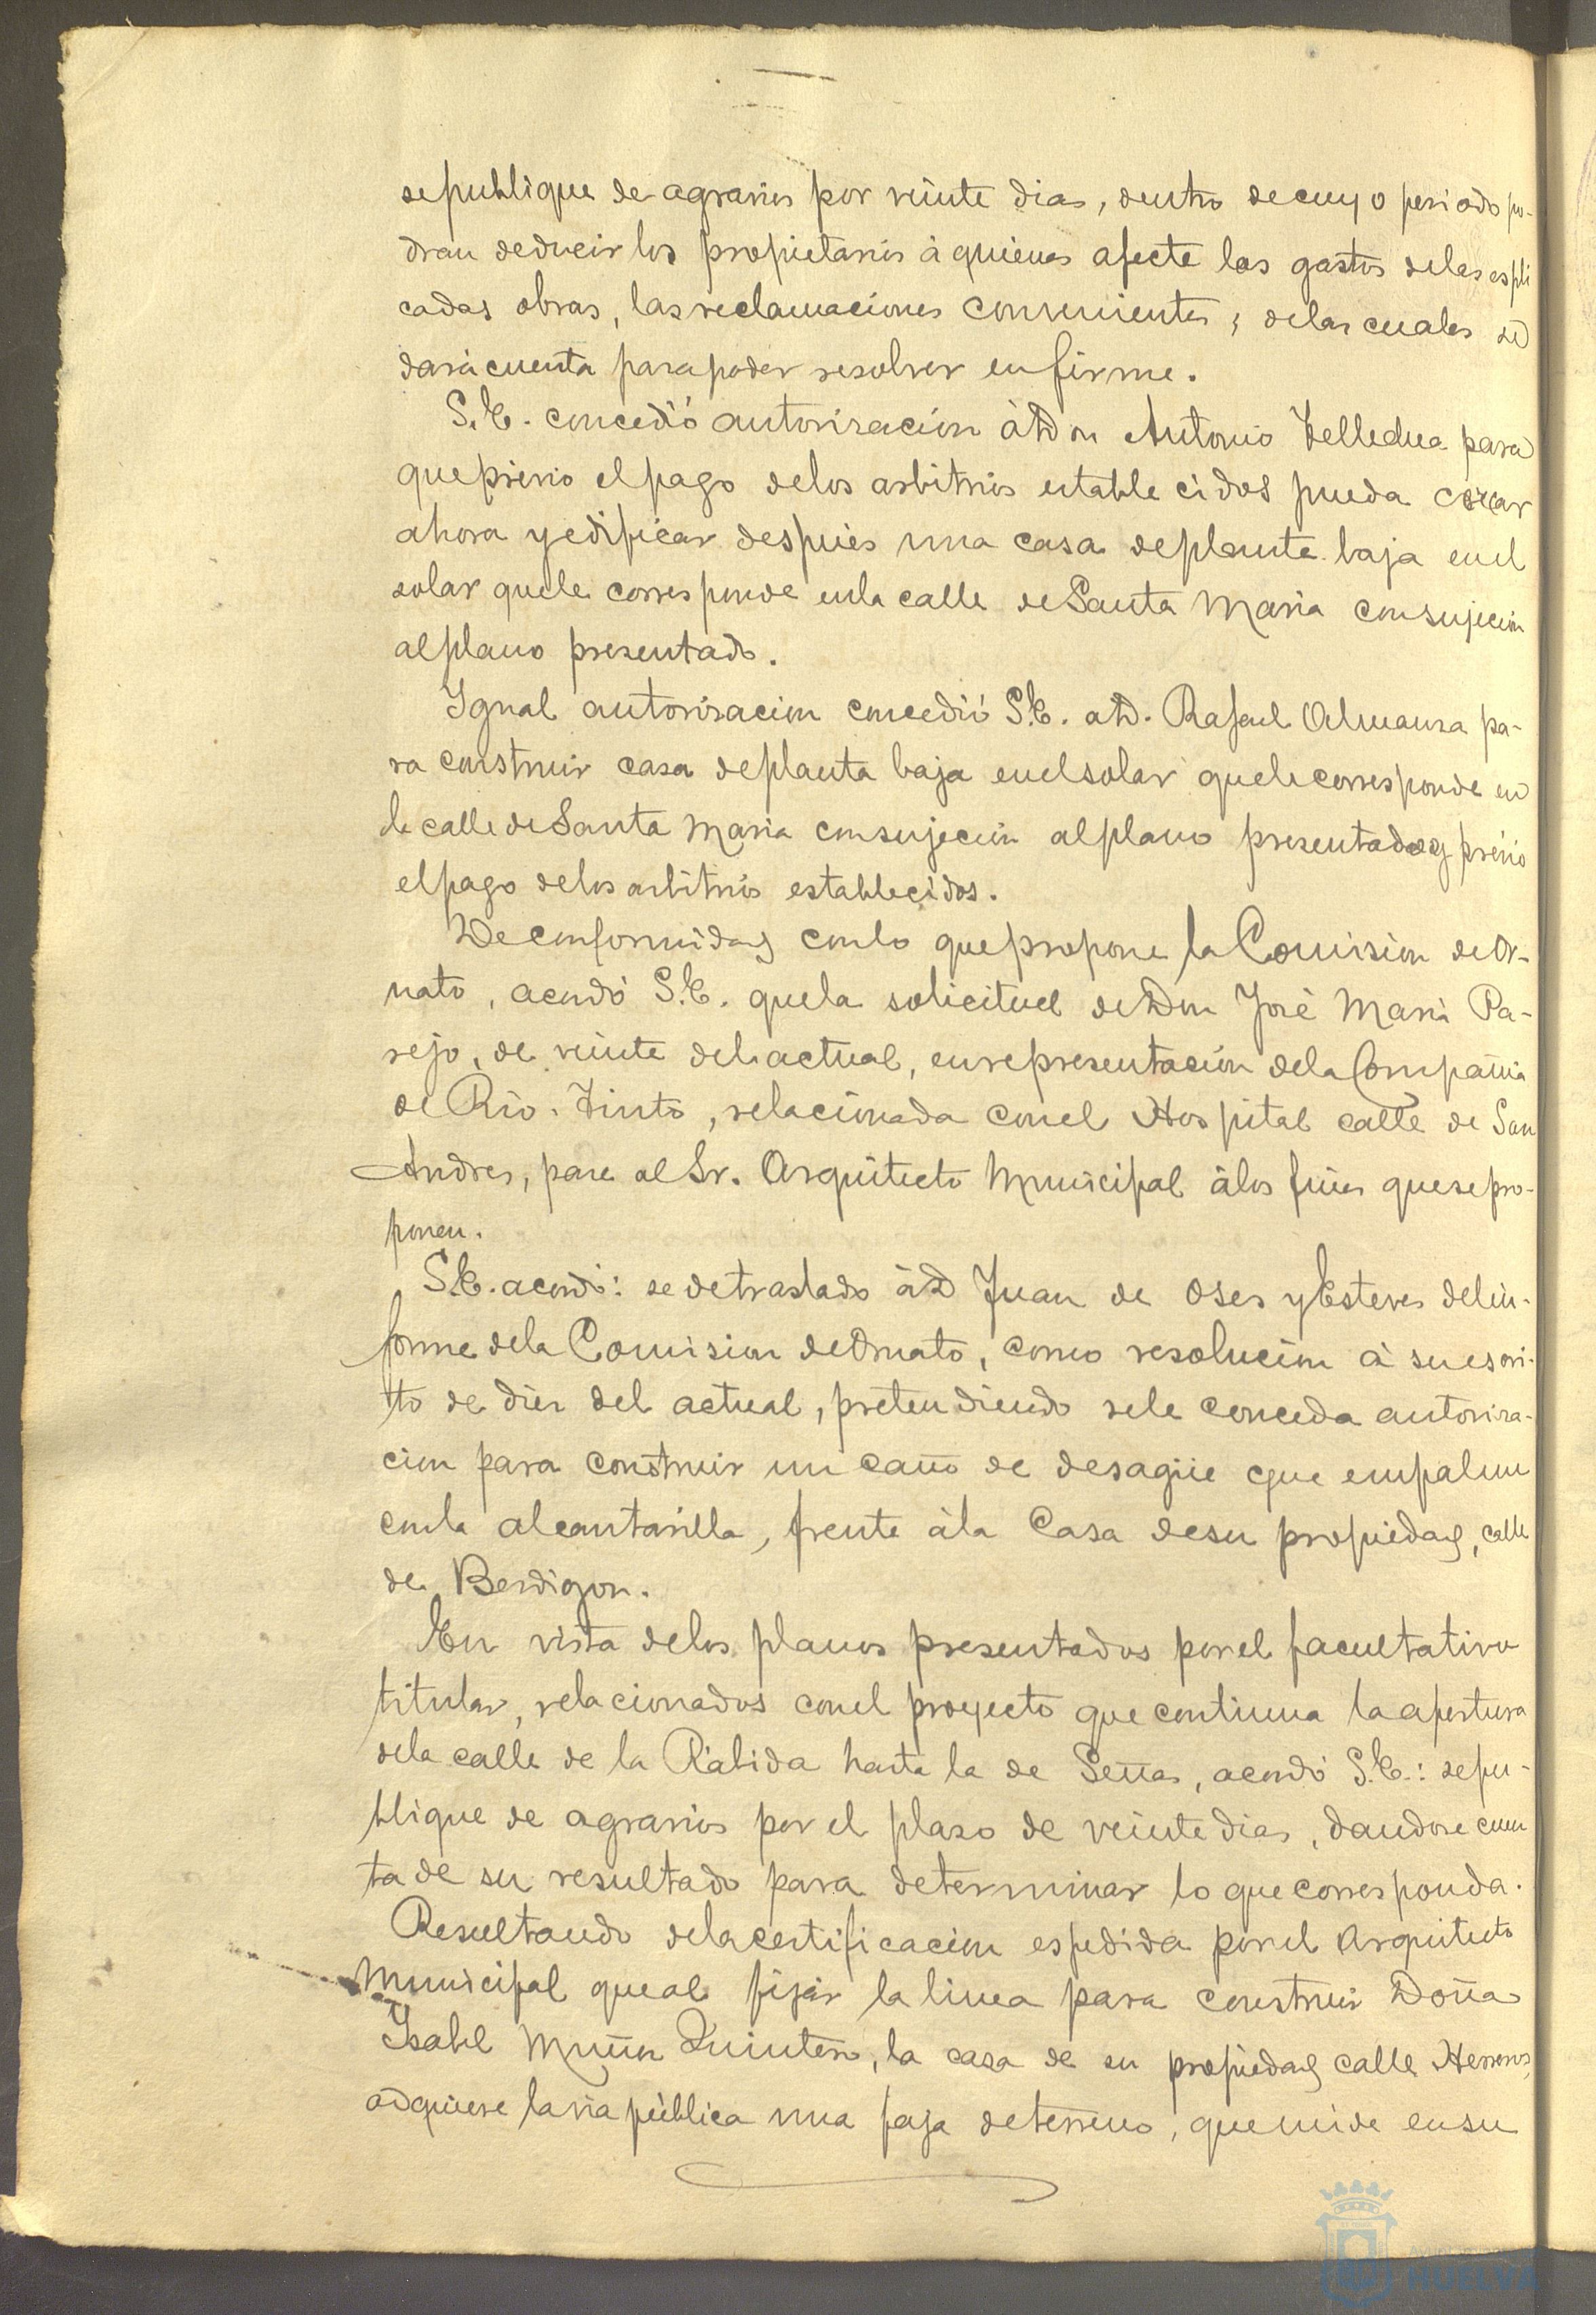 se publique de agravios por veinte dias, dentro de cuyo periodo po-
dran deducir los propietarios à quienes afecte los gastos de las espli
cadas obras, las reclamaciones convenientes; de las cuales se
dará cuenta para poder resolver en firme.
S.E. concedió autorizacion à Don Antonio para
que previo el pago de los arbitrios establecidos pueda cercar
ahora y edificar despues una casa de planta baja en el
solar que le corresponde en la calle de Santa Maria con sujecion
al plano presentado.
Igual autorizacion concedió S.E. a D. Rafael Almansa pa-
ra construir casa de planta baja en el solar que le corresponde en
la calle de Santa Maria con sujecion al plano presentado y prévio
el pago de los arbitrios establecidos.
De conformidad con lo que propone la Comision de Or-
nato, acordó S.E. que la solicitud de Don José Maria Pa-
rejo, de veinte del actual, en representacion de la Compañia
de Rio-Tinto, relacionada con el Hospital calle de San
Andres, pase al Sr. Arquitecto Municipal à los fines que se pro-
ponen.
S.E. acordó: se de traslado à D Juan de Oses y Esteves del in-
forme de la Comision de Ornato, como resolucion à su escri-
to de diez del actual, pretendiendo se le conceda autoriza-
cion para construir un caño de desagüe que empalme
con la alcantarilla, frente à la Casa de su propiedad, calle
de Berdigon.
En vista de los planos presentados por el facultativo
titular, relacionados con el proyecto que continua la apertura
de la calle de la Rábida hasta la de Señas, acordó S.E.: se pu-
blique de agravios por el plazo de veinte dias, dandose cuen
ta de su resultado para determinar lo que corresponda.
Resultando de la certificacion espedida por el Arquitecto
Municipal que al fijar la linea para construir Doña
Isabel Muñiz Quintero, la casa de su propiedad calle Herreros,
adquiere la via pública una faja de terreno, que mide en su
HUELVA